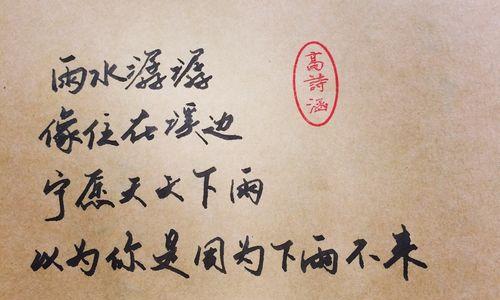 雨水潺潺
像住在溪边
宁愿天天下雨
以为你是因为下雨不来
高詩涵